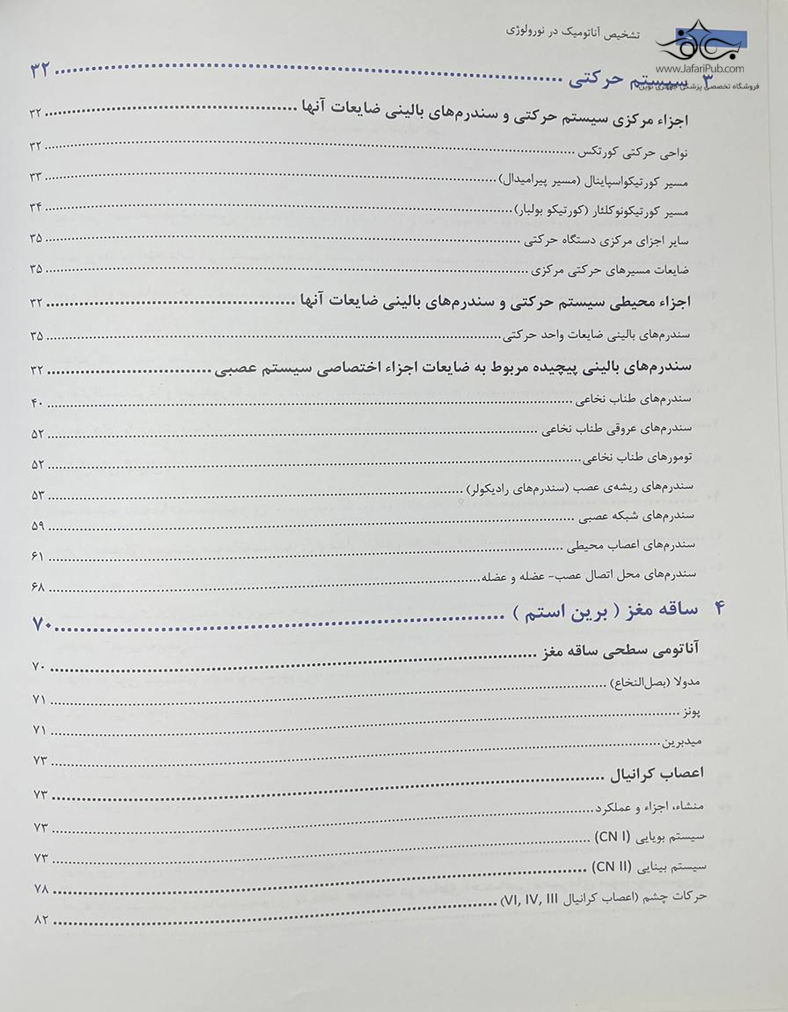 تشخیص آناتومیک در نورولوژی
www.JafariPub.com
فروشگاه تخصصی پزشکی جعفری نوین
۳ سیستم حرکتی ۳۲
اجزاء مرکزی سیستم حرکتی و سندرم‌های بالینی ضایعات آنها ۳۲
نواحی حرکتی کورتکس ۳۲
مسیر کورتیکواسپاینال (مسیر پیرامیدال) ۳۳
مسیر کورتیکونوکلئار (کورتیکو بولبار) ۳۴
سایر اجزای مرکزی دستگاه حرکتی ۳۵
ضایعات مسیرهای حرکتی مرکزی ۳۵
اجزاء محیطی سیستم حرکتی و سندرم‌های بالینی ضایعات آنها ۳۲
سندرم‌های بالینی ضایعات واحد حرکتی ۳۵
سندرم‌های بالینی پیچیده مربوط به ضایعات اجزاء اختصاصی سیستم عصبی ۳۲
سندرم‌های طناب نخاعی ۴۰
سندرم‌های عروقی طناب نخاعی ۵۲
تومورهای طناب نخاعی ۵۲
سندرم‌های ریشه‌ی عصب (سندرم‌های رادیکولر) ۵۳
سندرم‌های شبکه عصبی ۵۹
سندرم‌های اعصاب محیطی ۶۱
سندرم‌های محل اتصال عصب- عضله و عضله ۶۸
۴ ساقه مغز ( برین استم ) ۷۰
آناتومی سطحی ساقه مغز ۷۰
مدولا (بصل‌النخاع) ۷۱
پونز ۷۱
میدبرین ۷۳
اعصاب کرانیال ۷۳
منشاء، اجزاء و عملکرد ۷۳
سیستم بویایی (CN I) ۷۳
سیستم بینایی (CN II) ۷۸
حرکات چشم (اعصاب کرانیال VI, IV, III) ۸۲